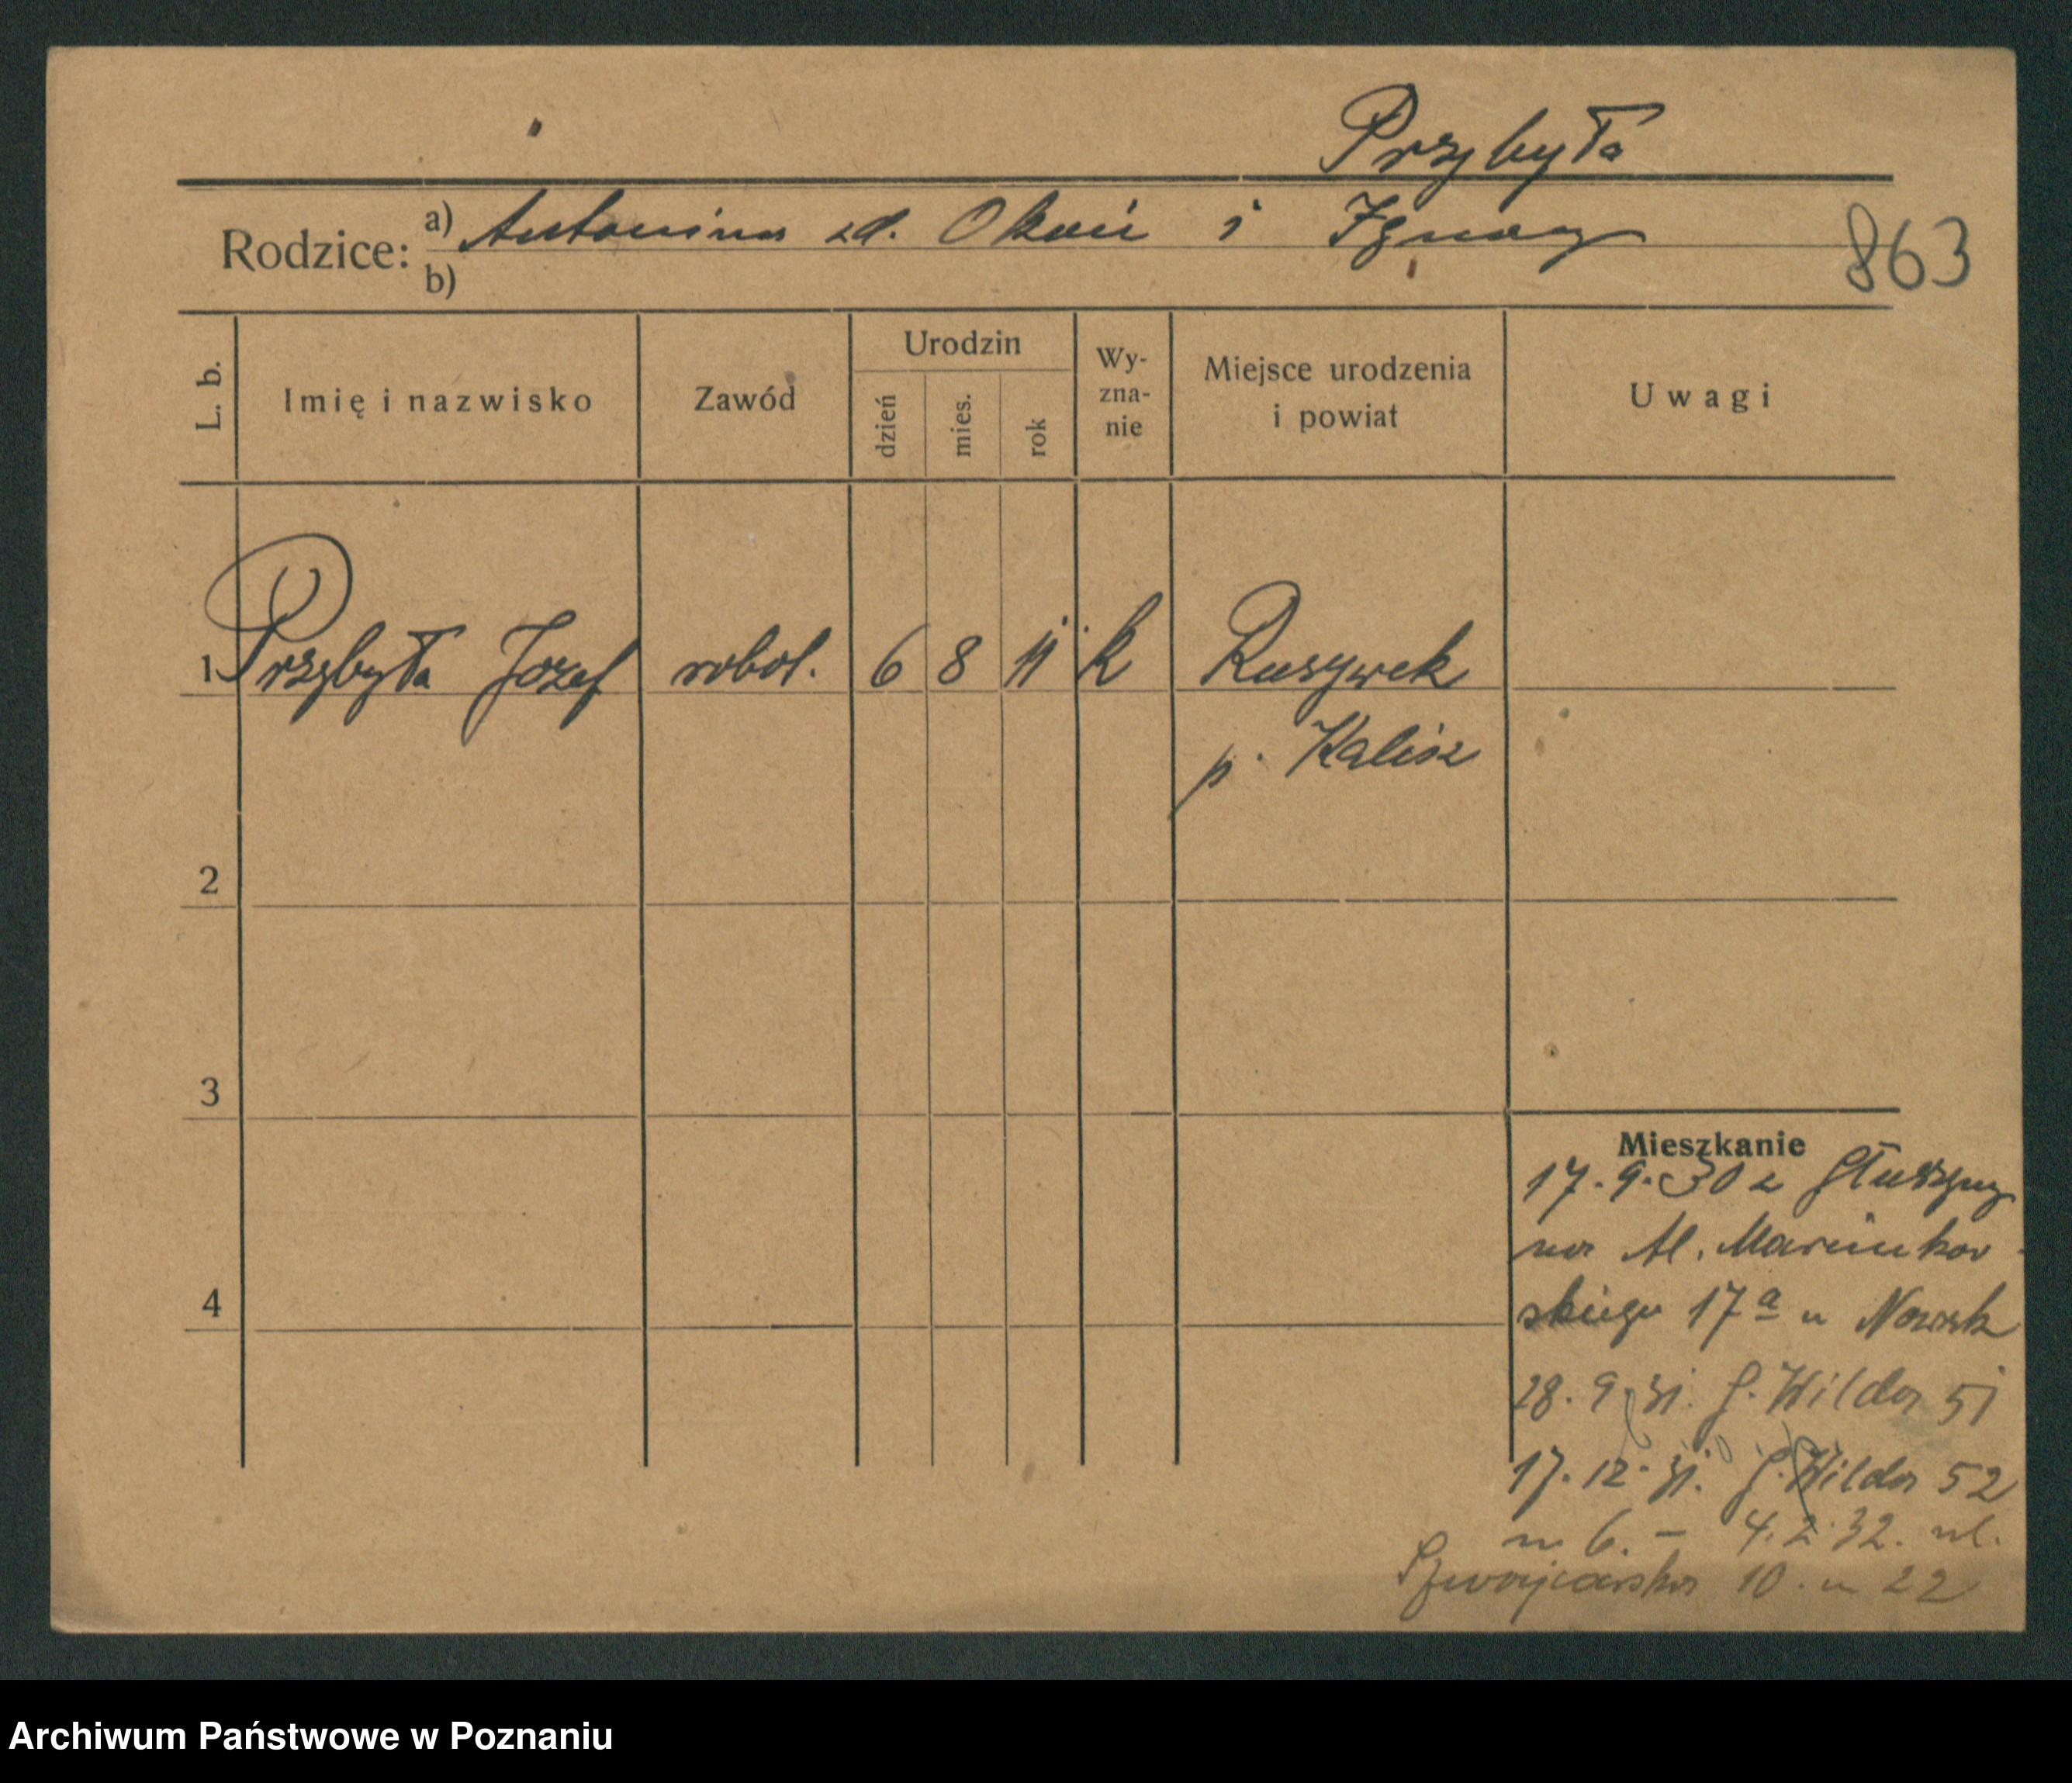 Przybyła
Rodzice: a) Antonina zd. Okoń i Ignacy
b)
863
L. b.
Imię i nazwisko
Zawód
Urodzin
dzień
mies.
rok
Wy-
zna-
nie
Miejsce urodzenia
i powiat
Uwagi
1 Przybyła Józef robot. 6 8 11 k
p. Kalisz
2
3
4
Mieszkanie
17.9.30 z Głuszyny
na Al. Marcinkow
skiego 17a u Nowak
28.9.31. G. Wilda 51
17.12.31. G. Wilda 52
m 6. – 4.2.32. ul.
Szwajcarska 10. m 22
Archiwum Państwowe w Poznaniu